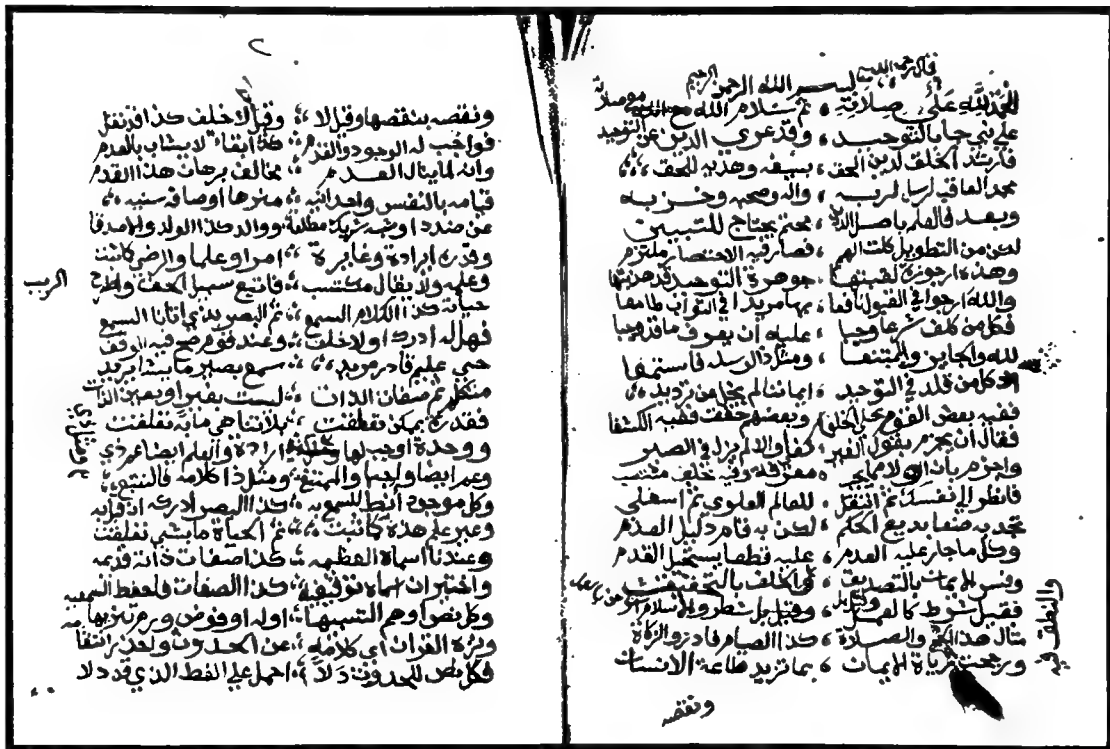 قال رحمه الله
بسم الله الرحمن الرحيم
الحمد لله على صلاته ، ثم سلام الله مع صلاته
على نبي جا بالتوحيد ، وقد عري الدين عن التوحيد
فارشد الخلق لدين الحق ، بسيفه وهديه للحق
محمد العاقب لرسل ربه ، واله وصحبه وحزبه
وبعد فالعلم باصل الدين ، محتم يحتاج للتبيين
لكن من التطويل كلت الهمم ، فصار فيه الاختصار ملتزم
وهذه ارجوزة لقبتها ، جوهرة التوحيد قد هذبتها
والله ارجو في القبول نافعا ، بها مريدا في الثواب طامعا
فكل من كلف شرعا وجبا ، عليه أن يعرف ما قد وجبا
لله والجايز والممتنعا ، ومثل ذا لرسله فاستمعا
اذ كل من قلد في التوحيد ، ايمانه لم يخل من ترديد
ففيه بعض القوم يحكي الخلفا ، وبعضهم حقق فيه الكشفا
فقال ان يجزم بقول الغير ، كفى والا لم يزل في الضير
واجزم بأن اولا مما يجب ، معرفة وفيه خلف منتصب
فانظر الى نفسك ثم انتقل ، للعالم العلوي ثم السفلي
تجد به صنعا بديع الحكم ، لكن به قام دليل العدم
وكل ما جاز عليه العدم ، عليه قطعا يستحيل القدم
وفسر الإيمان بالتصديق ، والخلف بالتحقيق
والنطق فيه
فقيل شرط كالعمل وقيل بل ، وقيل بل شطر والإسلام اشرحن بالعمل
مثال هذا الحج والصلاة ، كذا الصيام فادر والزكاة
ورجحت زيادة الإيمان ، بما تزيد طاعة الانسان
ونقصه
ونقصه بنقصها وقيل لا ، وقيل لا خلف كذا قد نقل
فواجب له الوجود والقدم ، كذا بقاء لا يشاب بالعدم
وانه لما ينال العدم ، مخالف برهان هذا القدم
قيامه بالنفس وحدانيه ، منزها أوصافه سنيه
عن ضد او شبه شريك مطلقا ، ووالد كذا الولد والاصدقا
وقدرة إرادة وغايرت ، امرا وعلما والرضى كما ثبت
وعلمه ولا يقال مكتسب ، فاتبع سبيل الحق واطرح
الريب
حياته كذا الكلام السمع ، ثم البصر بذي اتانا السمع
فهل له ادراك اولا خلف ، وعند قوم صح فيه الوقف
حي عليم قادر مريد ، سمع بصير ما يشا يريد
متكلم ثم صفات الذات ، ليست بغير او بعين الذات
فقدرة بممكن تعلقت ، بلا تناهي ما به تعلقت
ووحدة اوجب لها ومثل ذي ، إرادة والعلم ايضا عم ذي
وعم ايضا واجبا والممتنع ، ومثل ذا كلامه فالنتبع
وكل موجود أنط للسمع به ، كذا البصر ادراكه ان قيل به
وغير علم هذه كما ثبت ، ثم الحياة ما بشي تعلقت
وعندنا اسماه العظيمه ، كذا صفات ذاته قديمه
واختير ان اسماه توقيفيه ، كذا الصفات فاحفظ السمعيه
وكل نص اوهم التشبيها ، اوله او فوض ورم تنزيها
ونزه القران أي كلامه ، عن الحدوث واحذر انتقامه
فكل نص للحدوث دلا ، احمل على اللفظ الذي قد دلا